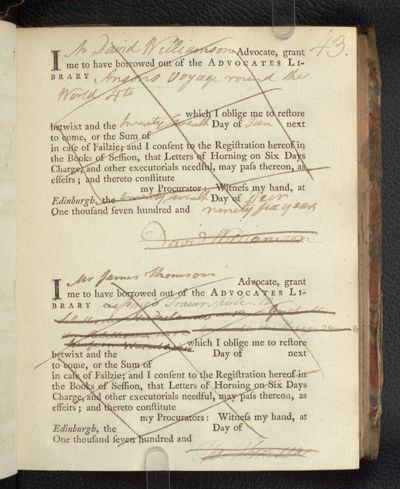 43.
I Mr David Williamson Advocate, grant
me to have borrowed out of the ADVOCATES LI-
BRARY Ansons Voyage round the
World 4to
which I oblige me to reſtore
betwixt and the twenty seventh Day of Jan next
to come, or the Sum of
in caſe of Failzie; and I conſent to the Regiſtration hereof in
the Books of Seſſion, that Letters of Horning on Six Days
Charge, and other executorials needful, may paſs thereon, as
effeirs; and thereto conſtitute
my Procurators: Witneſs my hand, at
Edinburgh, the twenty seventh Day of
One thouſand ſeven hundred and ninety six years
David Williamson
I Mr James Thomson Advocate, grant
me to have borrowed out of the ADVOCATES LI-
BRARY
which I oblige me to reſtore
betwixt and the Day of next
to come, or the Sum of
in caſe of Failzie; and I conſent to the Regiſtration hereof in
the Books of Seſſion, that Letters of Horning on Six Days
Charge, and other executorials needful, may paſs thereon, as
effeirs; and thereto conſtitute
my Procurators: Witneſs my hand, at
Edinburgh, the Day of
One thouſand ſeven hundred and